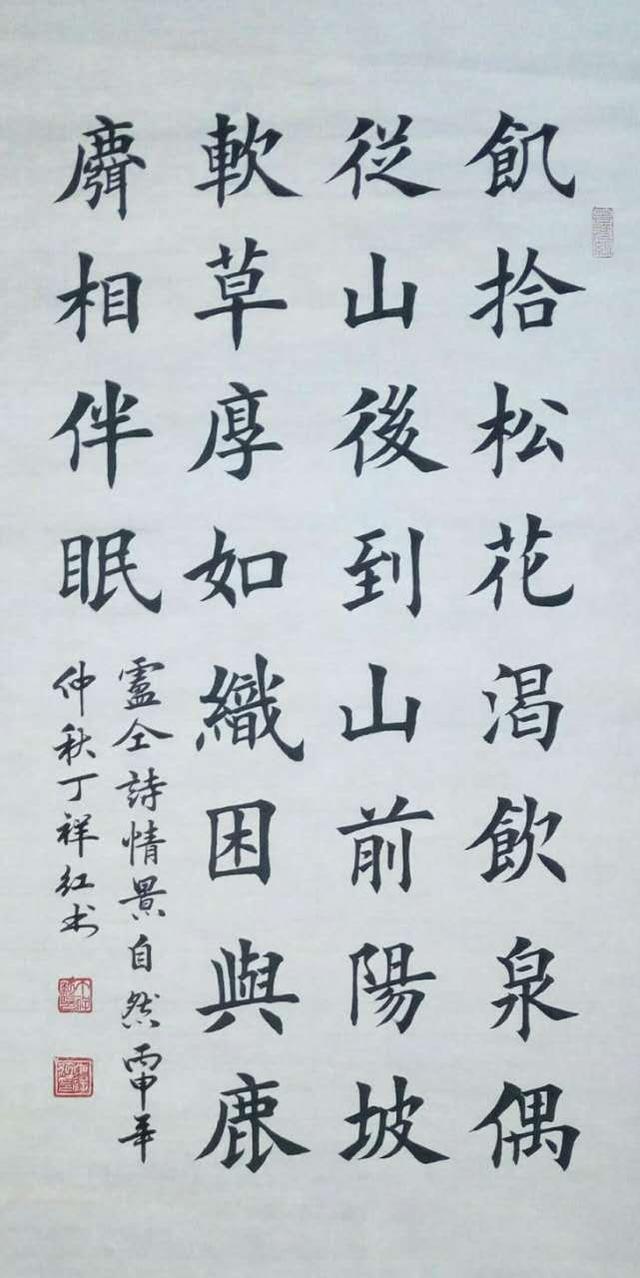 飢拾松花渴飲泉偶
從山後到山前陽坡
軟草厚如織困與鹿
麛相伴眠
盧仝詩情景自然丙申年
仲秋丁祥紅书